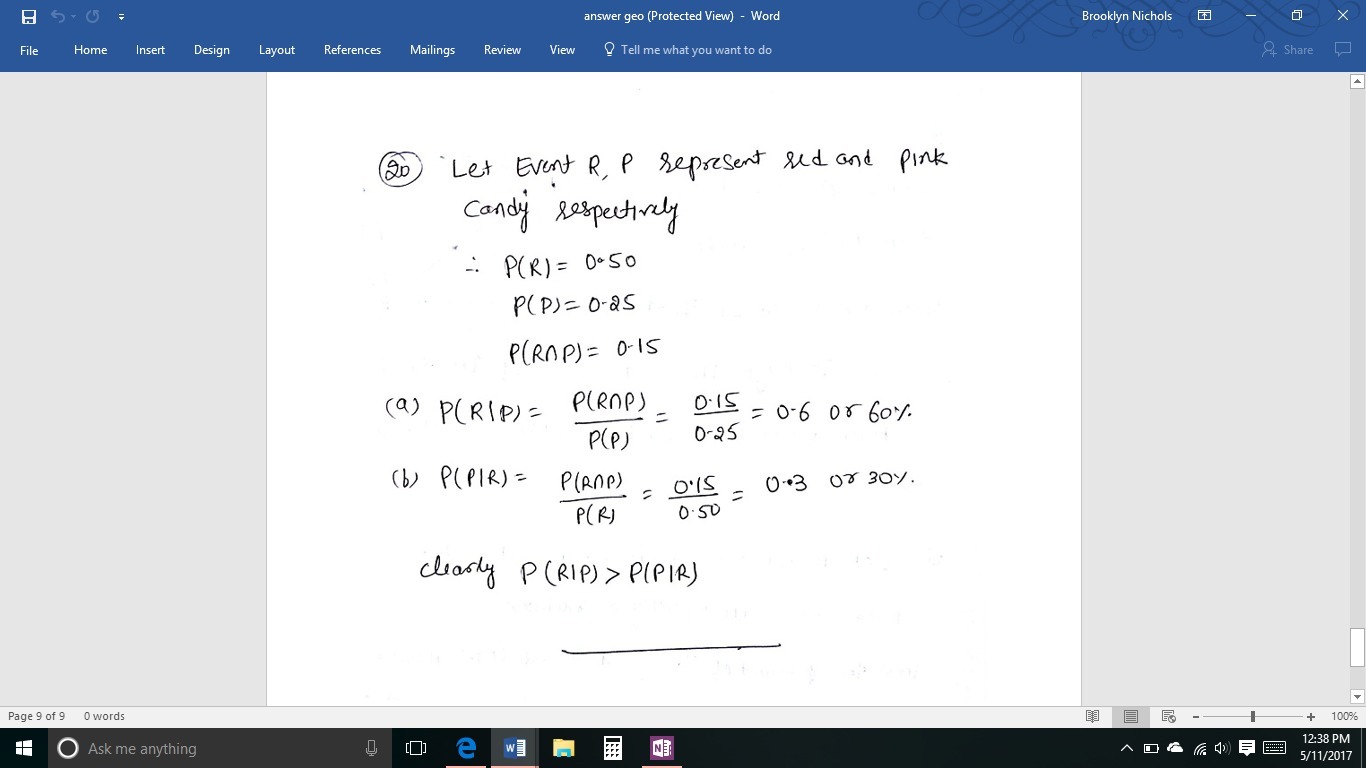 answer geo (Protected View) - Word
Brooklyn Nichols
File Home Insert Design Layout References Mailings Review View Tell me what you want to do Share
20 Let Event R, P represent red and pink
Candy respectively
∴ P(R) = 0.50
P(P) = 0.25
P(R∩P) = 0.15
(a) P(R|P) = P(R∩P)/P(P) = 0.15/0.25 = 0.6 or 60%.
(b) P(P|R) = P(R∩P)/P(R) = 0.15/0.50 = 0.3 or 30%.
clearly P(R|P) > P(P|R)
Page 9 of 9 0 words
100%
Ask me anything
12:38 PM
5/11/2017